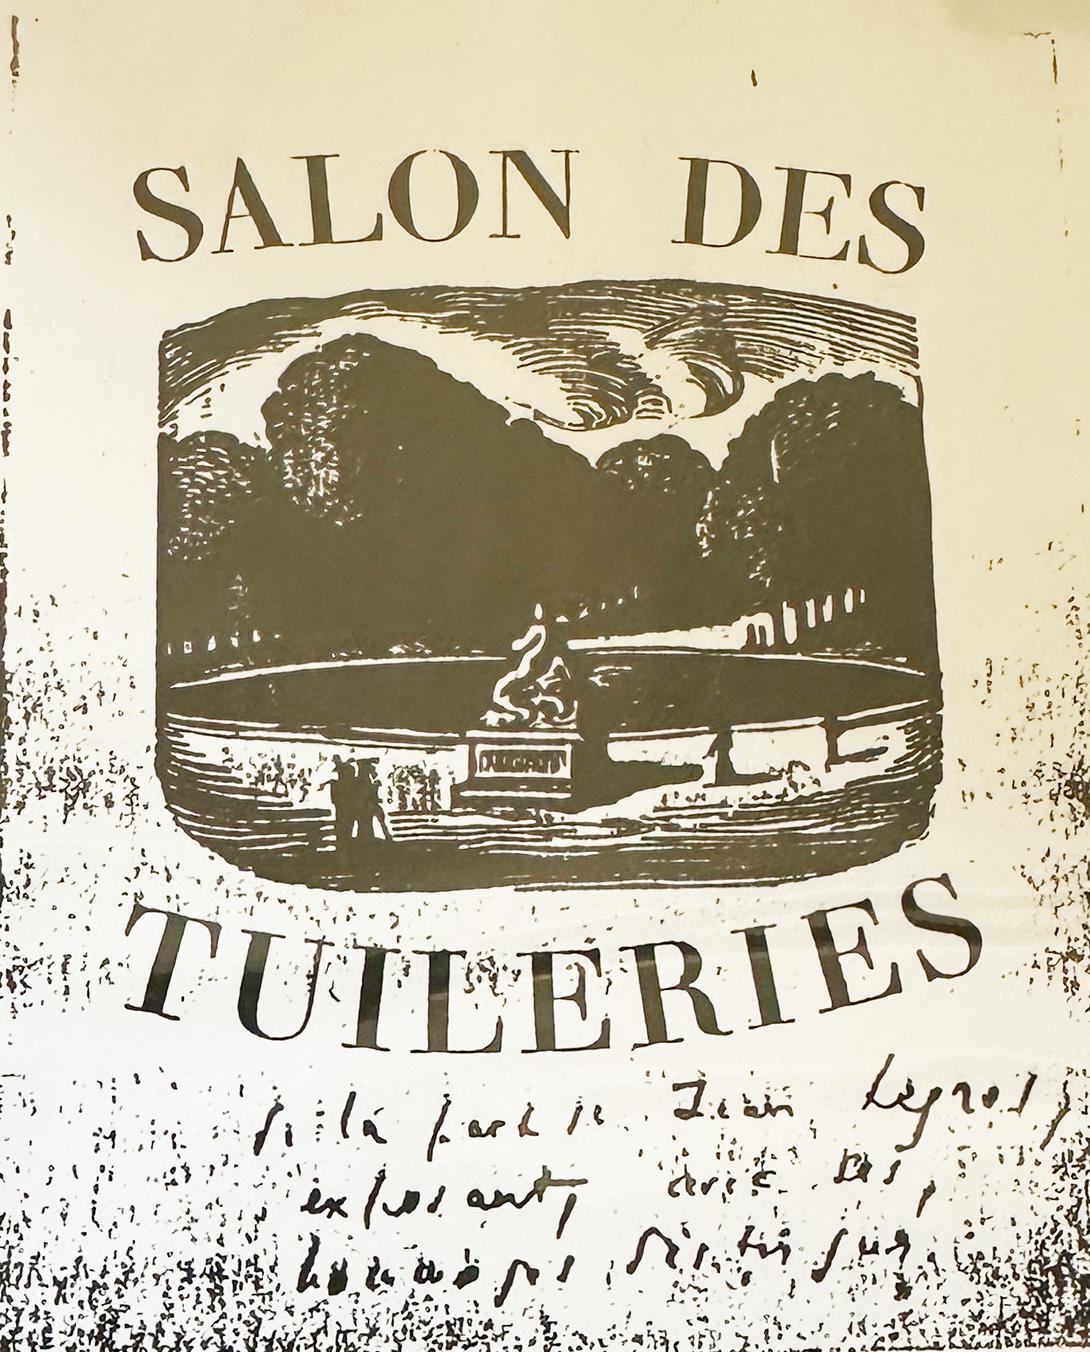 SALON DES
TUILERIES
de la part de Jean Legros,
exposant, avec ses
hommages